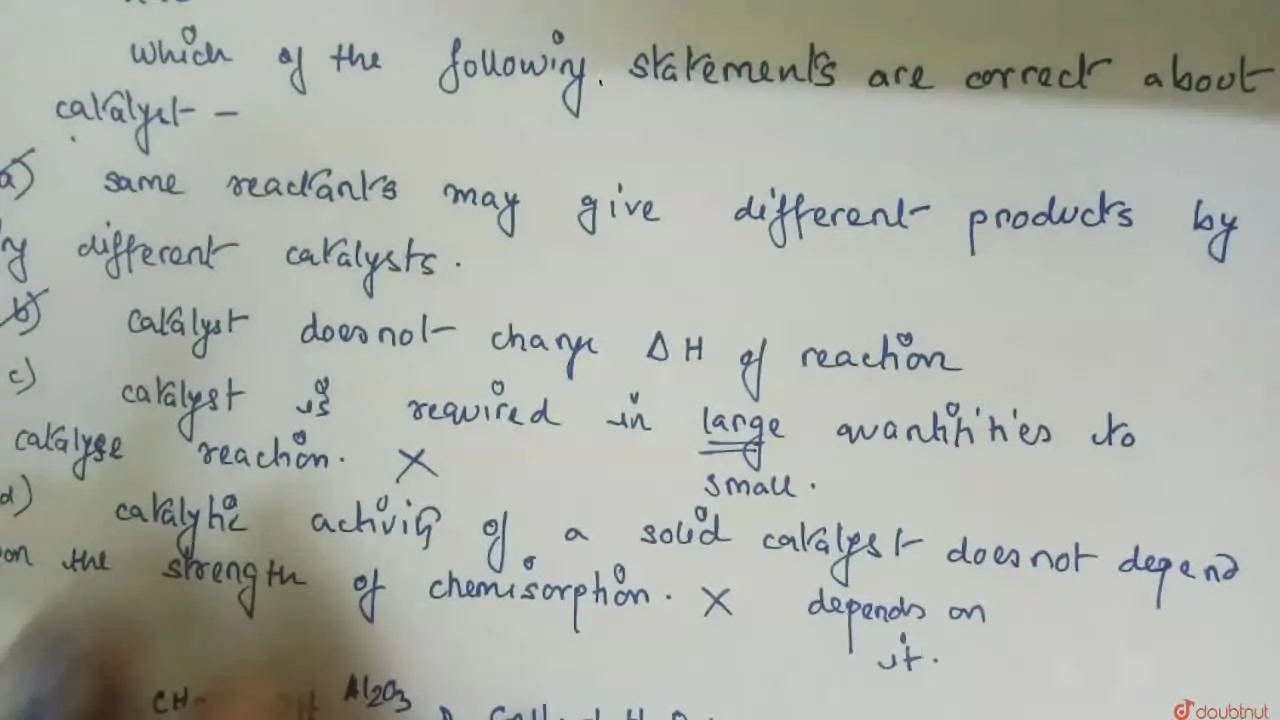 which of the following. statements are correct about
catalyst -
a) same reactants may give different products by
different catalysts.
b) catalyst does not change ΔH of reaction
c) catalyst is required in large quantities to
catalyse reaction. X small.
d) catalytic activity of a solid catalyst does not depend
on the strength of chemisorption. X depends on
it.
CH- Al2O3
doubtnut